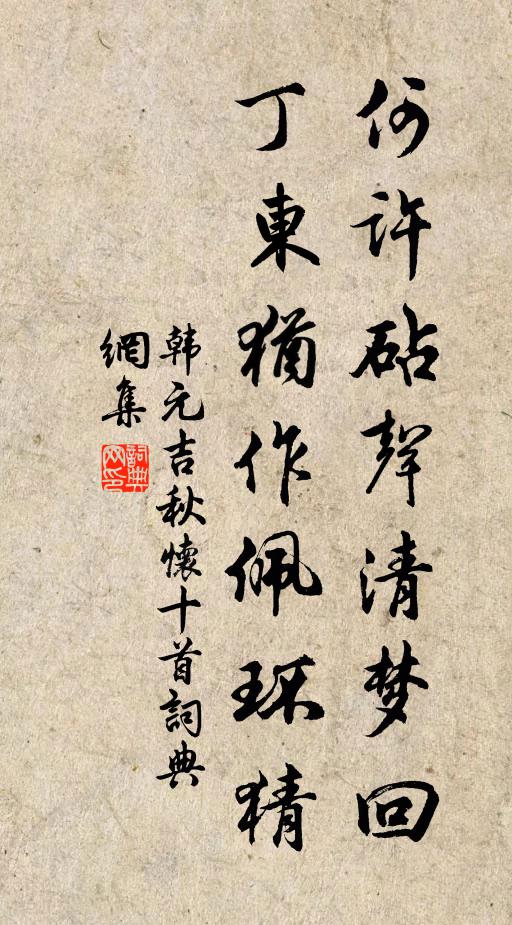 何許砧聲清梦回
丁東猶作佩环猜
韩元吉秋懷十首詞典
網集
詞典网印